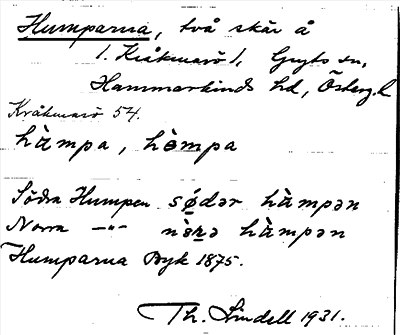 Humparna, två skär å
1. Kråkmarö 1, Gryts sn,
Hammarkinds hd, Österg. l
Kråkmarö 54.
hàmpa, hòmpa
Södra Humpen sǿdər hàmpən
Norra –"– nòrə hàmpən
Humparna Byk 1875.
Th. Lindell 1931.